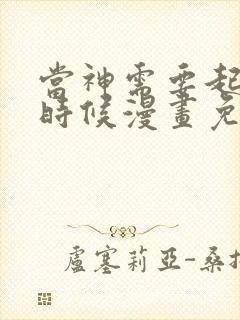 當神需要起
時候漫畫免
盧塞莉亞-桑托